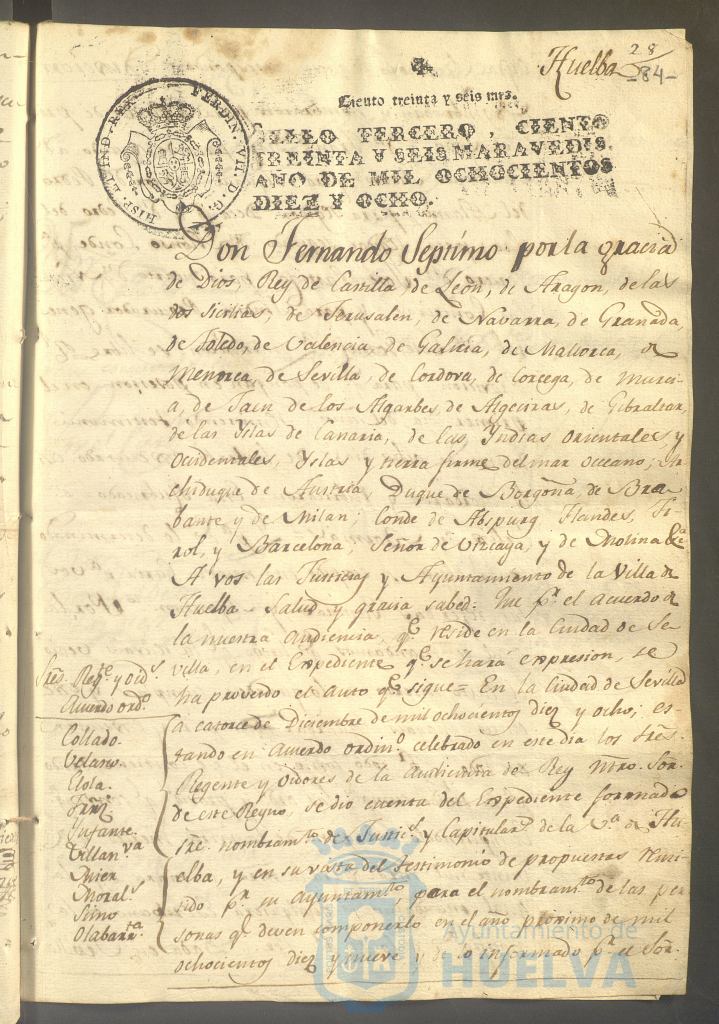 Huelba
28
84
Ciento treinta y seis mrs.
SELLO TERCERO, CIENTO
TREINTA Y SEIS MARAVEDIS,
AÑO DE MIL OCHOCIENTOS
DIEZ Y OCHO.
FERDIN. VII. D. G. HISP. ET IND. REX
Don Fernando Septimo por la gracia
de Dios, Rey de Castilla, de Leon, de Aragon, de las
dos Sicilias, de Jerusalen, de Navarra, de Granada,
de Toledo, de Valencia, de Galicia, de Mallorca, de
Menorca, de Sevilla, de Cordova, de Corcega, de Murci-
a, de Jaen de los Algarbes, de Algeciras, de Gibraltar,
de las Yslas de Canaria, de las Yndias orientales y
Occidentales, Yslas y tierra firme del mar occeano; Ar-
chiduque de Austria Duque de Borgoña, de Bra-
bante y de Milan; Conde de Abspurg Flandes, Ti-
rol, y Barcelona; Señor de Vizcaya, y de Molina &c
A vos las Justicias y Ayuntamiento de la Villa de
Huelba Salud y gracia sabed: Que pr. el acuerdo de
la nuestra Audiencia, qe. reside en la Ciudad de Se-
villa, en el Expediente qe. se hará expresion, se
ha proveido el auto qe. sigue = En la Ciudad de Sevilla
a catorce de Diciembre de mil ochocientos diez y ocho; es-
tando en acuerdo ordino. celebrado en este dia los Sres.
Regente y Oidores de la Audiencia de Rey Ntro. Sor.
de este Reyno, se dió cuenta del Expediente formado
sre. nombramto. de Justics. y Capitulars. de la Va. de Hu-
elba, y en su vista del testimonio de propuestas remi-
tido pr. su Ayuntamto., para el nombramto. de las per-
sonas qe. deven componerlo en el año proximo de mil
ochocientos diez y nueve y de lo informado pr. el Sor.
Sres. Regte. y oids.
Acuerdo ordo.
Collado.
Velasco.
Elola.
Frñz.
Infante.
Villanva
Mier
Morals.
Sirno
Olabarrta.
Ayuntamiento de
HUELVA